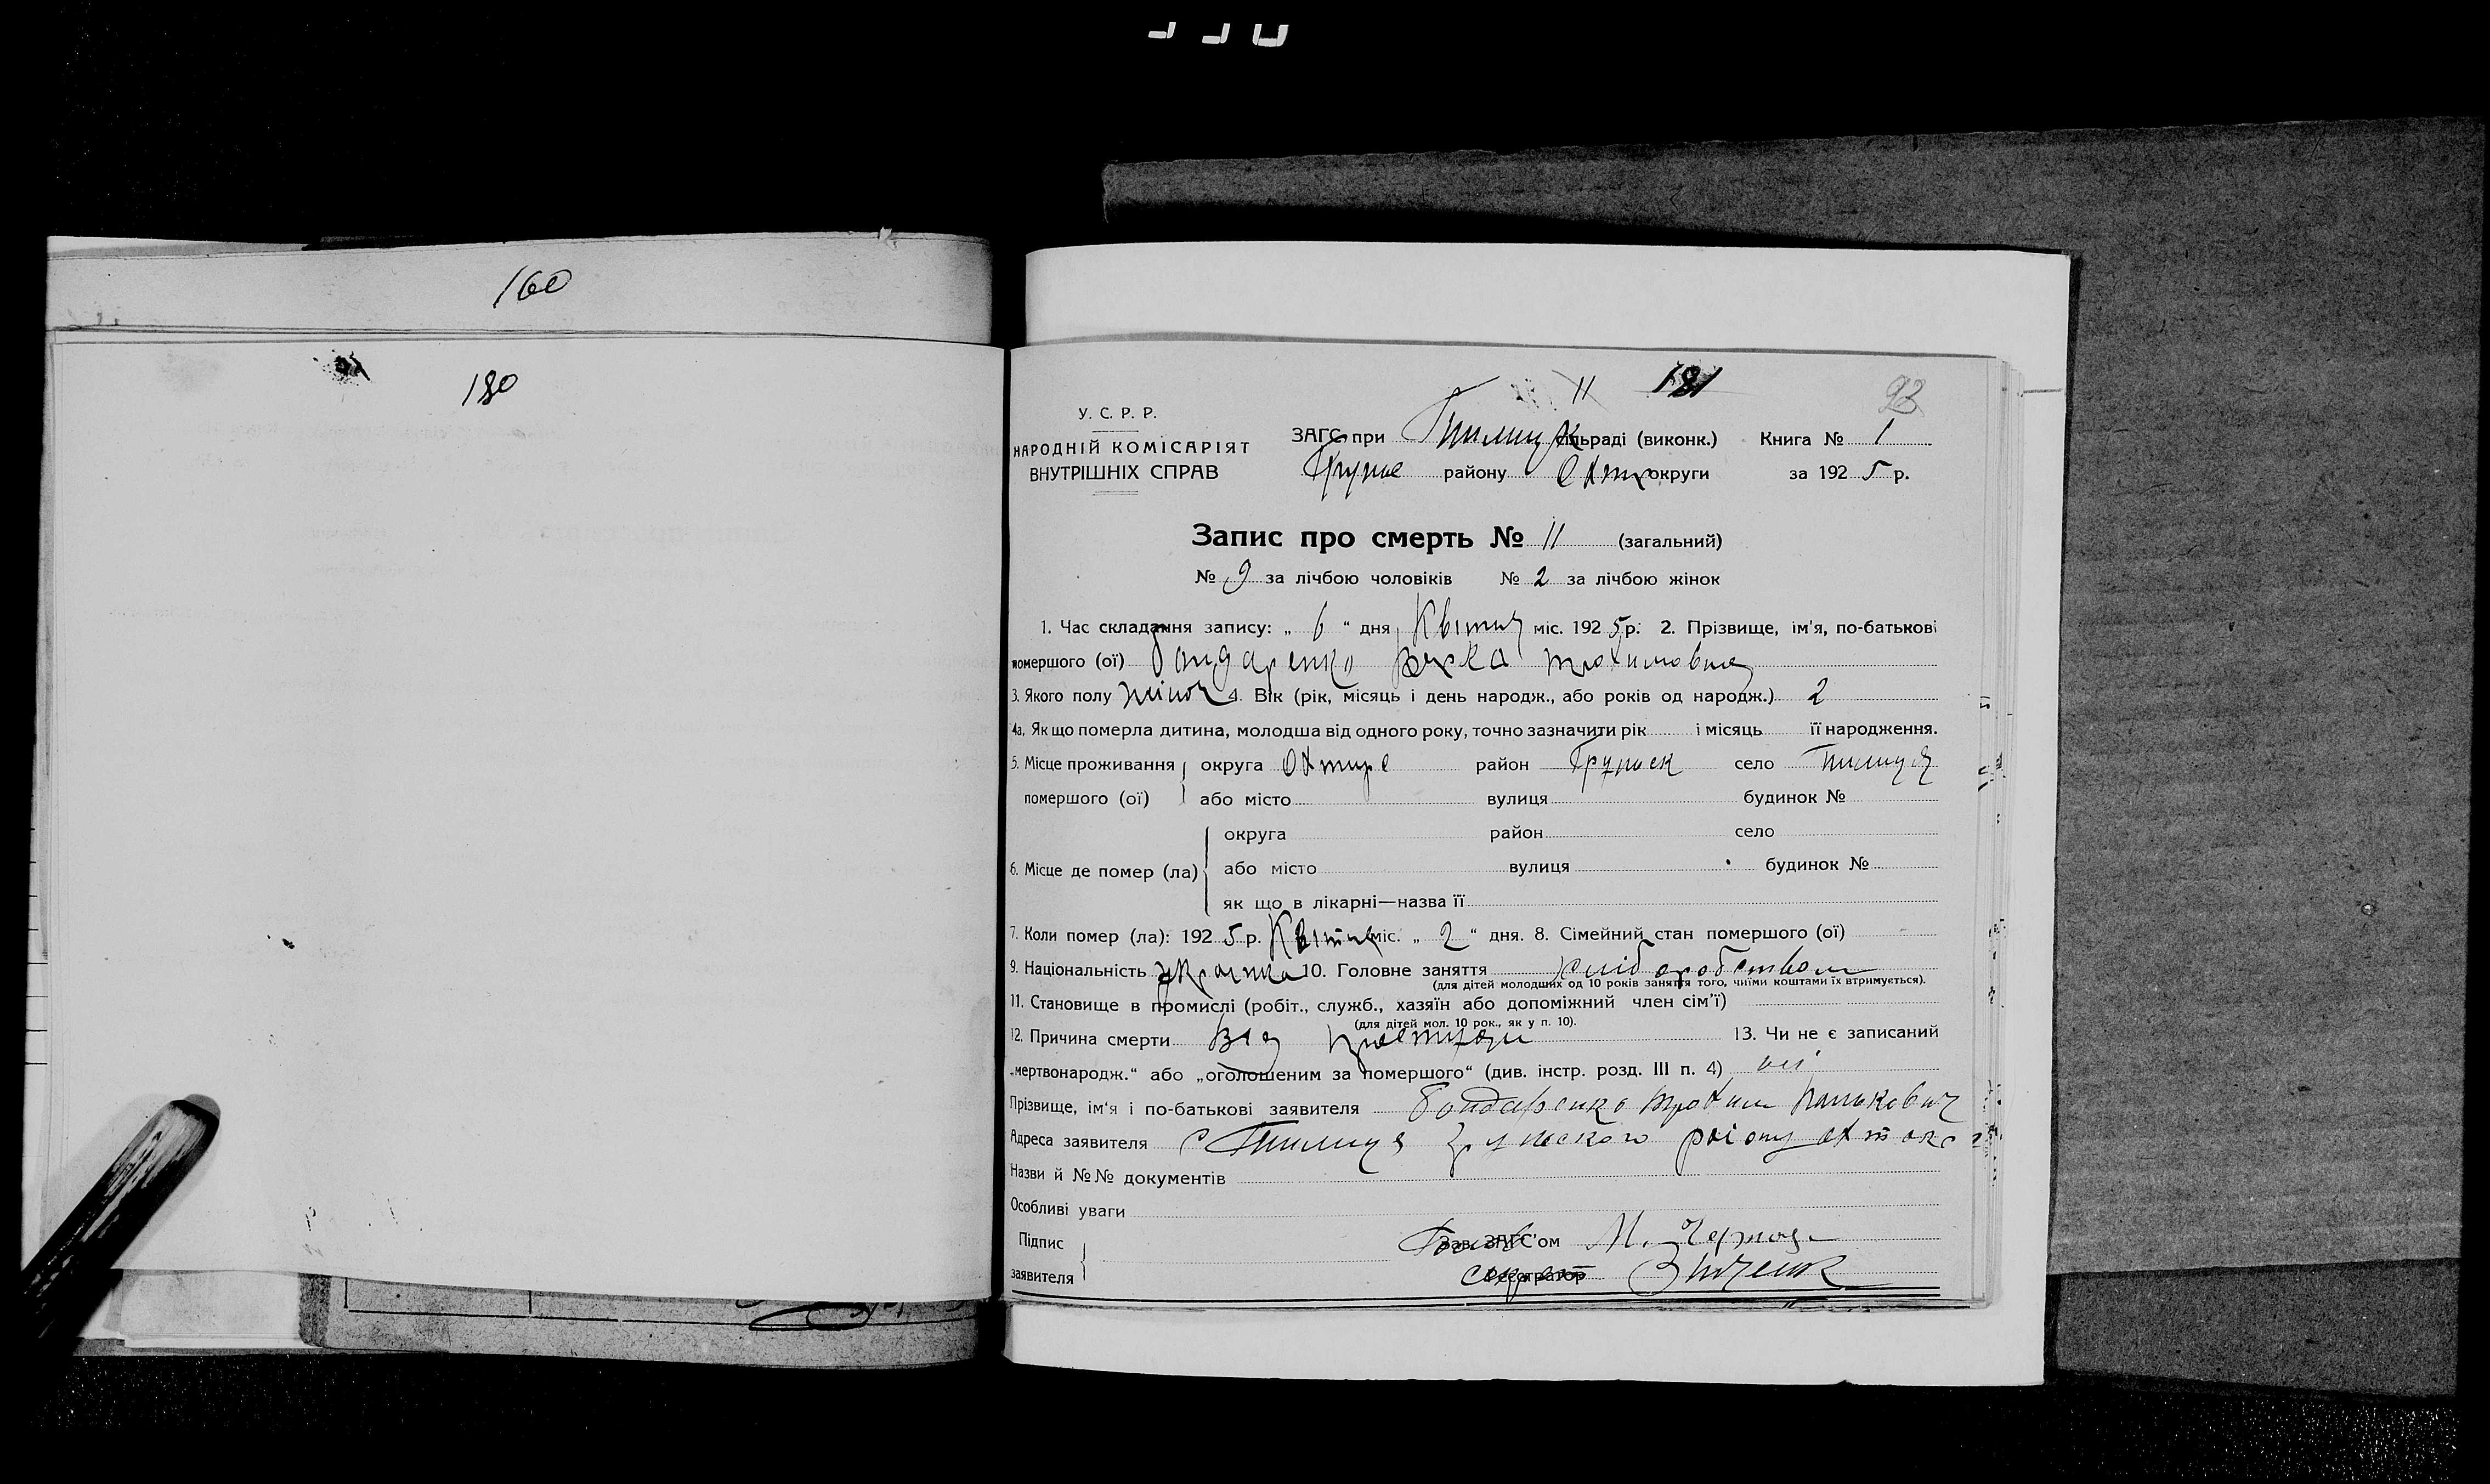 160
180
11 181 93
У. С. Р. Р.
НАРОДНІЙ КОМІСАРІЯТ
ВНУТРІШНІХ СПРАВ
ЗАГС при сільраді (виконк.) Книга № 1
району Охт округи за 1925 р.
Запис про смерть № 11 (загальний)
№ 9 за лічбою чоловіків № 2 за лічбою жінок
1. Час складання запису: „ 6 “ дня Квітня міс. 1925 р. 2. Прізвище, ім'я, по-батькові
помершого (ої) Бондаренко Трохимовна
3. Якого полу жіноч 4. Вік (рік, місяць і день народж., або років од народж.) 2
4а. Як що померла дитина, молодша від одного року, точно зазначити рік і місяць її народження.
5. Місце проживання округа Охтирс район Грунськ село
помершого (ої) або місто вулиця будинок №
округа район село
6. Місце де помер (ла) або місто вулиця будинок №
як що в лікарні—назва її
7. Коли помер (ла): 1925 р. Квітня міс. „ 2 “ дня. 8. Сімейний стан помершого (ої) -
9. Національність українка 10. Головне заняття хліборобством
(для дітей молодших од 10 років заняття того, чиїми коштами їх втримується).
11. Становище в промислі (робіт., служб., хазяїн або допоміжний член сім'ї)
(для дітей мол. 10 рок., як у п. 10).
12. Причина смерти Від простуди 13. Чи не є записаний
„мертвонародж.“ або „оголошеним за помершого“ (див. інстр. розд. III п. 4) ні
Прізвище, ім'я і по-батькові заявителя Бондаренко Трохим Панькович
Адреса заявителя с Грунського району
Назви й №№ документів
Особливі уваги
Підпис
заявителя
Зав. ЗАГС'ом М.
Реєстратор